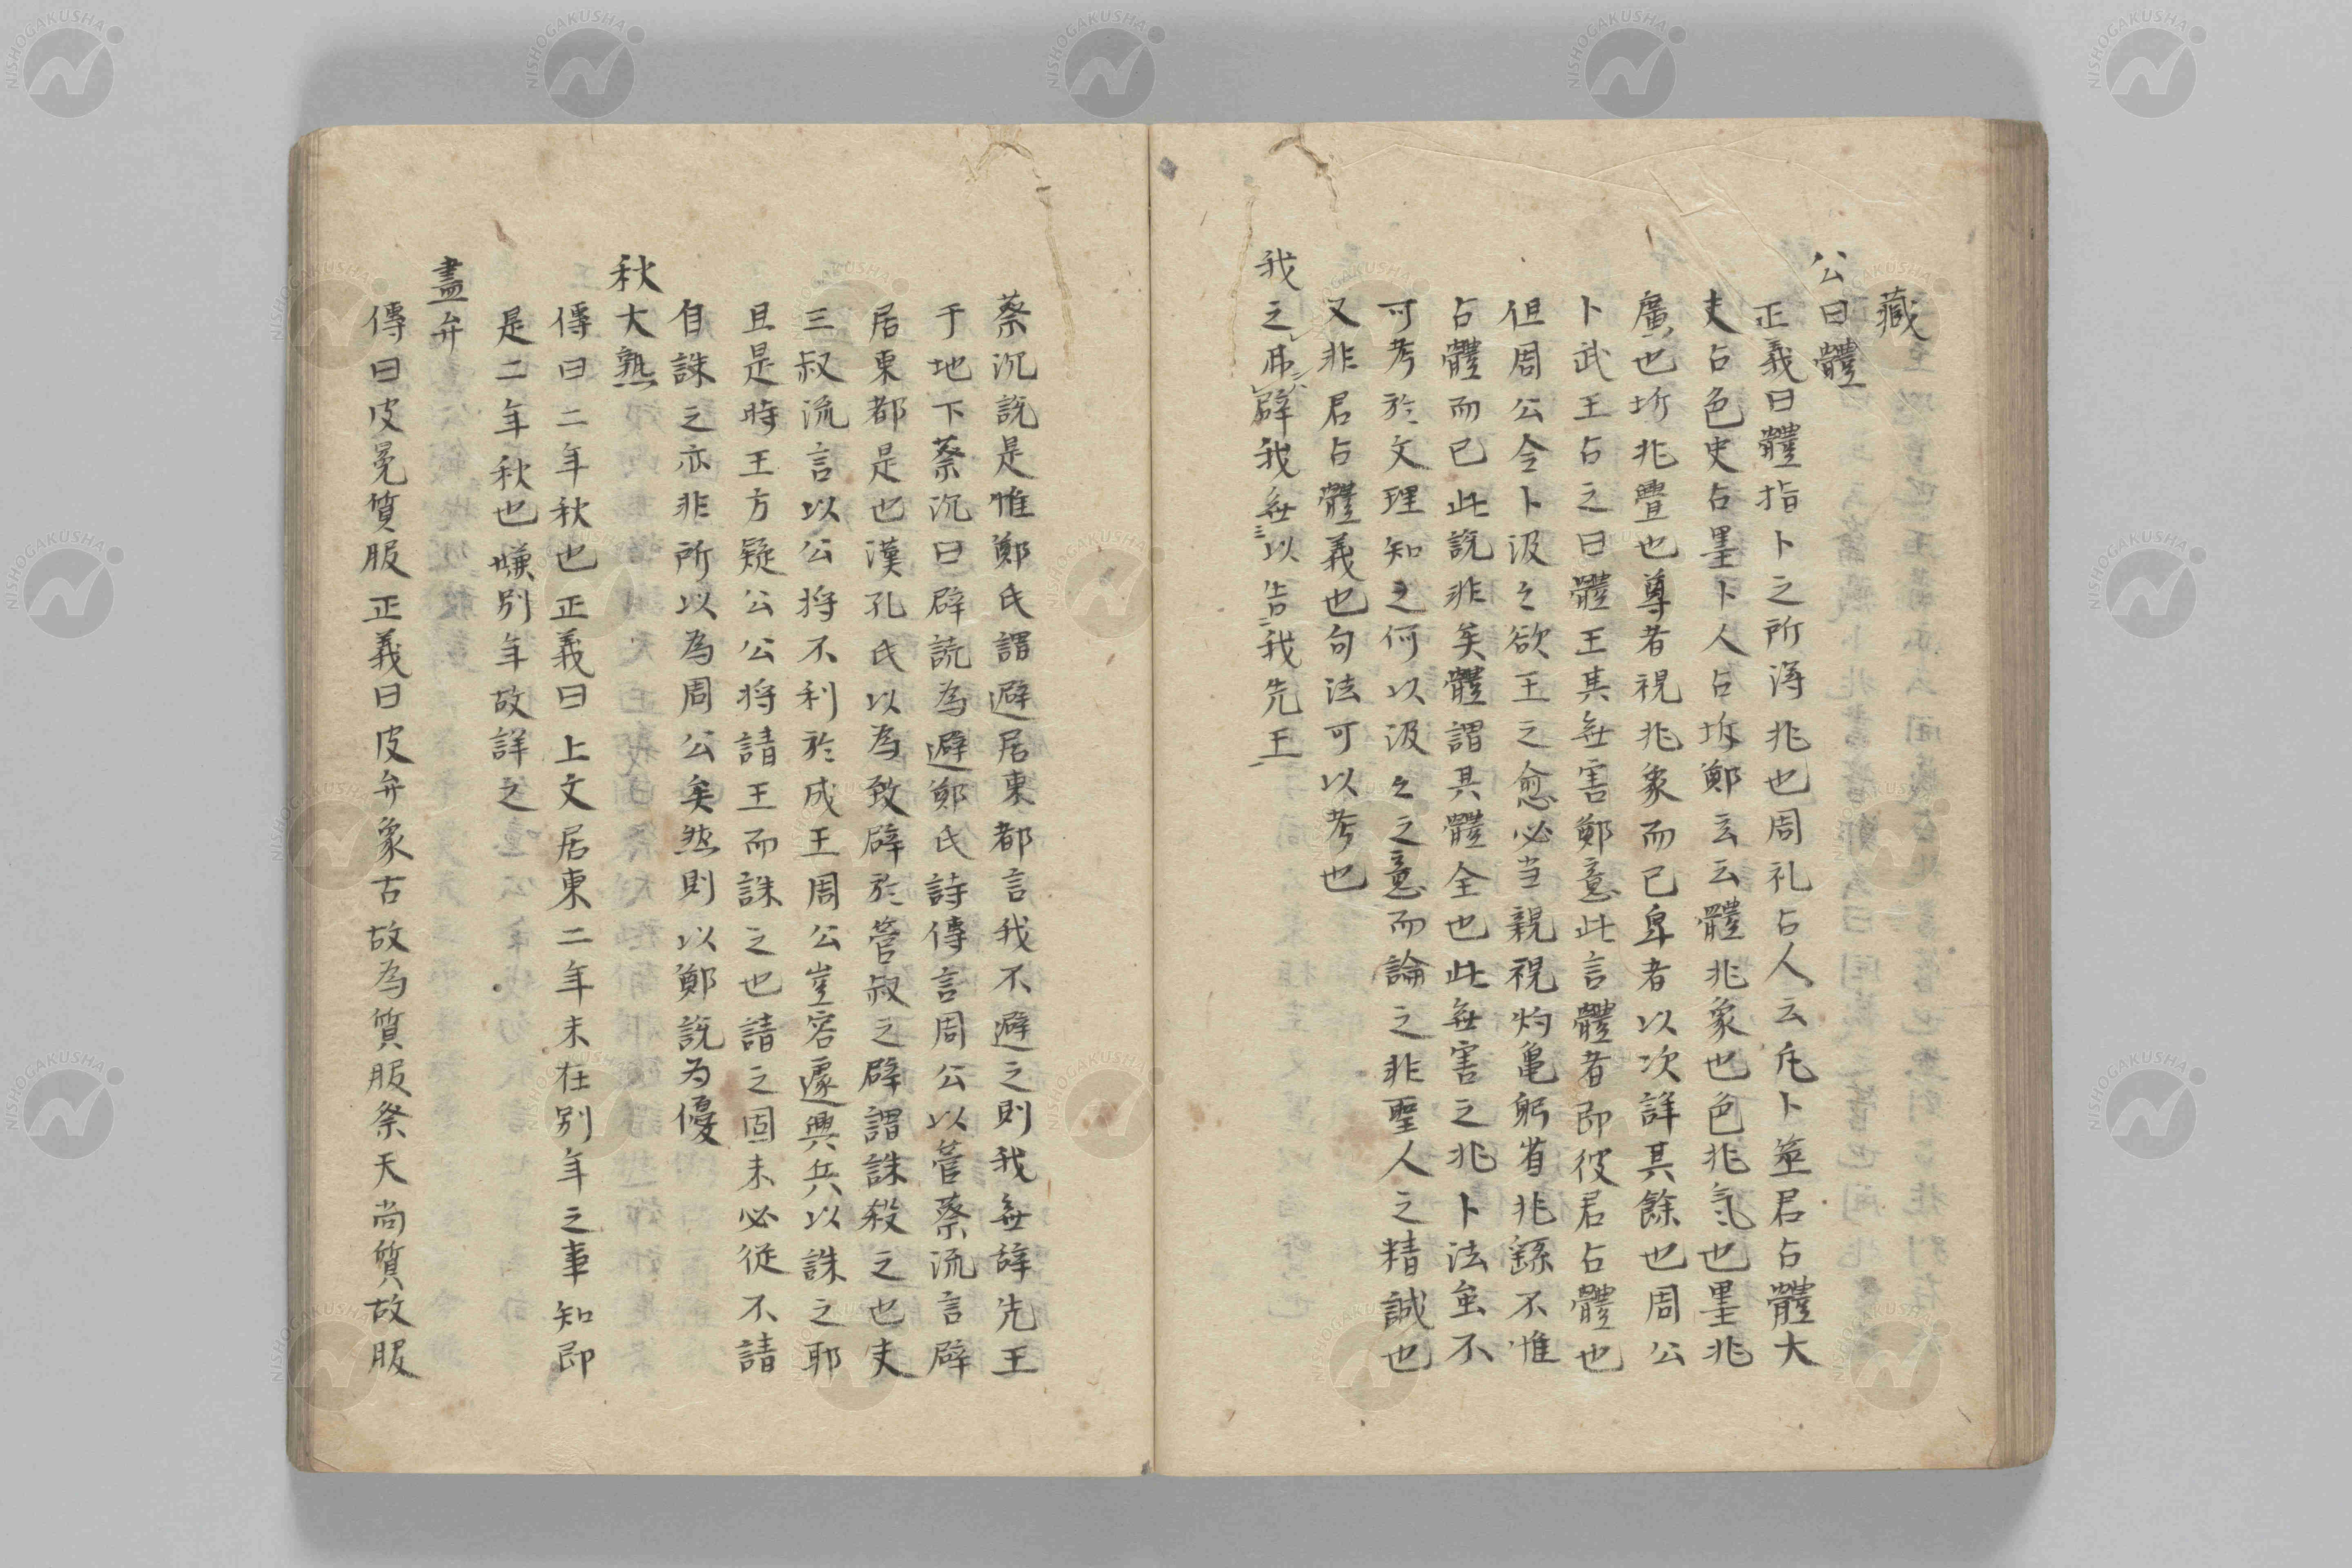 藏
公曰體
正義曰體指卜之所淂兆也周礼占人云凡卜筮君占體大
夫占色史占墨卜人占坼鄭玄云體兆象也色兆氣也墨兆
廣也坼兆舋也尊者視兆象而已卑者以次詳其餘也周公
卜武王占之曰體王其無害鄭意此言體者即彼君占體也
但周公令卜汲々欲王之愈必当親視灼亀躬省兆繇不惟
占體而已此說非矣體謂具體全也此無害之兆卜法虽不
可考於文理知之何以汲々之意而論之非聖人之精誠也
又非君占體義也句法可以考也
我之弗辟我無以告我先王
蔡沉說是惟鄭氏謂避居東都言我不避之則我無辞先王
于地下蔡沉曰辟読為避鄭氏詩傳言周公以管蔡流言辟
居東都是也漢孔氏以為致辟於管叔之辟謂誅殺之也夫
三叔流言以公将不利於成王周公豈容遽興兵以誅之耶
且是時王方疑公公将請王而誅之也請之固未必從不請
自誅之亦非所以為周公矣然則以鄭說为優
秋大熟
傳曰二年秋也正義曰上文居東二年未在别年之事知即
是二年秋也嫌别年故詳之
盡弁
傳曰皮冕質服正義曰皮弁象古故為質服祭天尚質故服